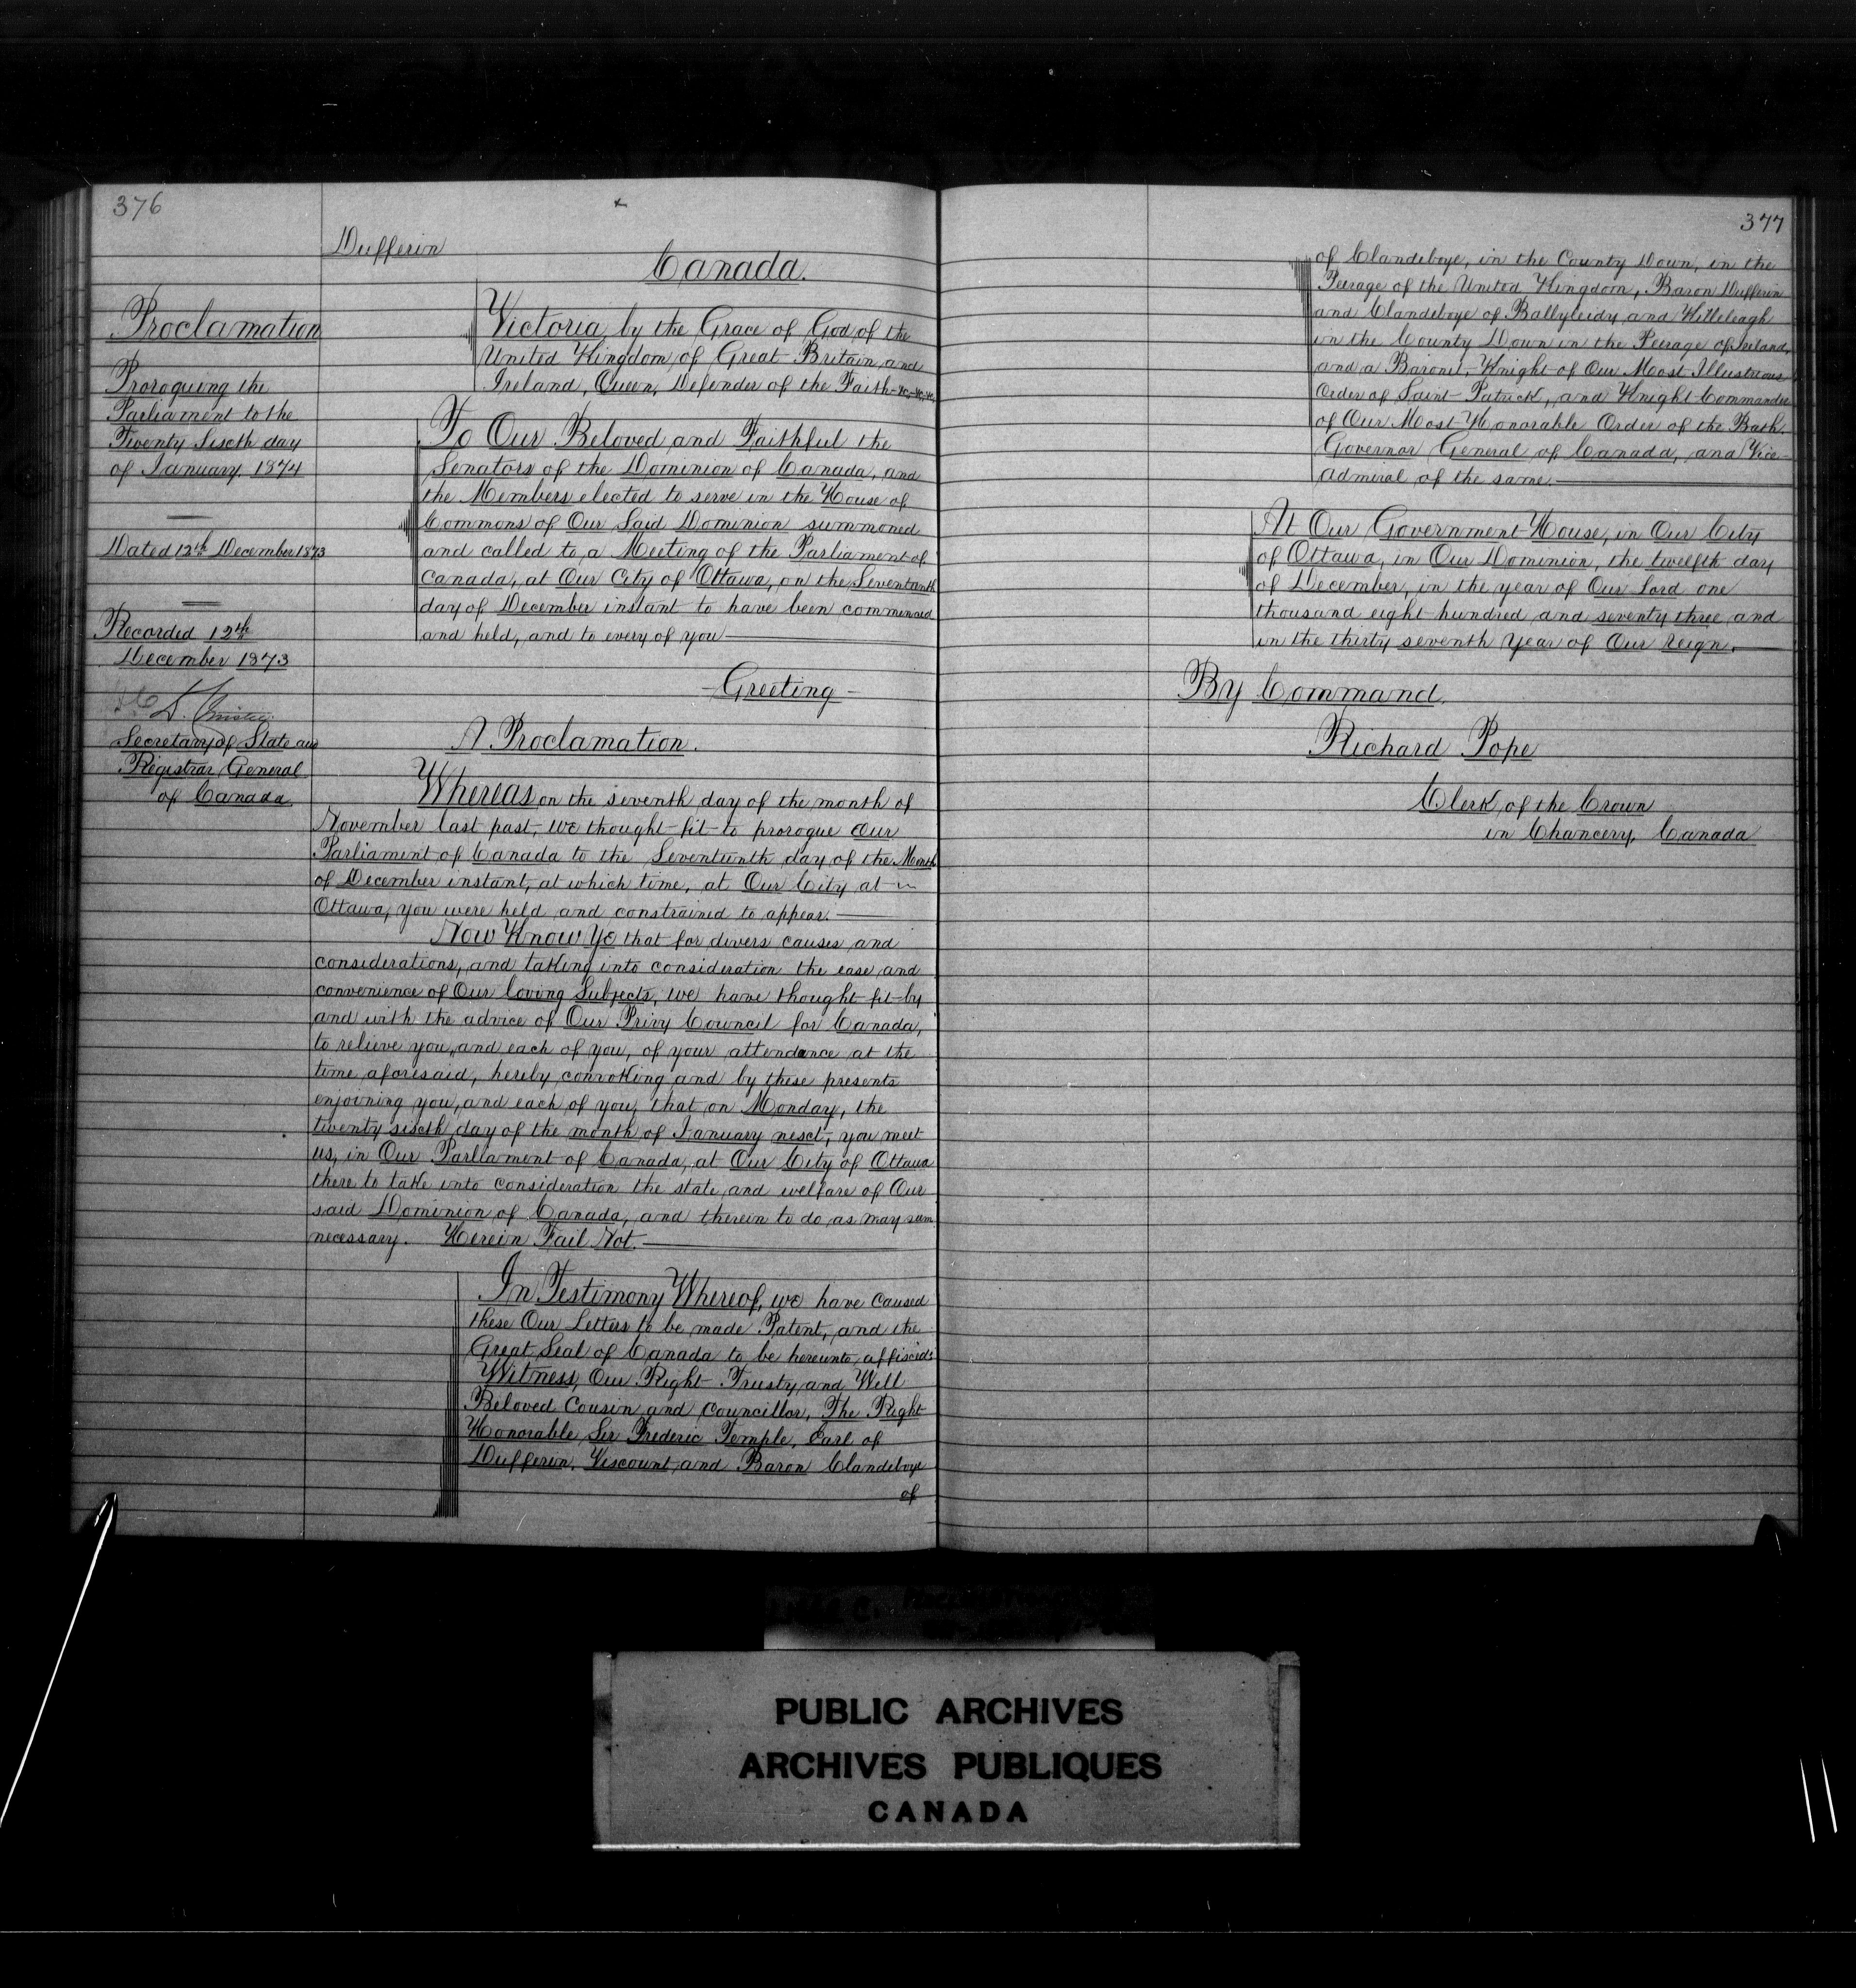 376
Dufferin
Canada.
Proclamation
Proroguing the
Parliament to the
Twenty Sixth day
of January, 1874
Dated 12th December 1873
Recorded 12th
December 1873
D. Christie
Secretary of State and
Registrar General
of Canada.
Victoria, by the Grace of God, of the
United Kingdom of Great Britain and
Ireland, Queen, Defender of the Faith &c, &c, &c,
To Our Beloved and Faithful the
Senators of the Dominion of Canada, and
the Members elected to serve in the House of
Commons of Our Said Dominion summoned
and called to a Meeting of the Parliament of
Canada, at Our City of Ottawa, on the Seventeenth
day of December instant to have been commenced
and held, and to every of you
- Greeting -
A Proclamation.
Whereas on the seventh day of the month of
November last past, we thought fit to prorogue Our
Parliament of Canada to the Seventeenth day of the Month
of December instant, at which time, at Our City at
Ottawa, you were held and constrained to appear.
Now Know Ye that for divers causes and
considerations, and taking into consideration the ease and
convenience of Our loving Subjects, we have thought fit by
and with the advice of Our Privy Council for Canada,
to relieve you, and each of you, of your attendance at the
time aforesaid, hereby convoking and by these presents
enjoining you, and each of you, that on Monday, the
twenty sixth day of the month of January next, you meet
us, in Our Parliament of Canada, at Our City of Ottawa
there to take into consideration the state and welfare of Our
said Dominion of Canada, and therein to do as may seem
necessary. Herein Fail Not.
In Testimony Whereof, we have caused
these Our Letters to be made Patent, and the
Great Seal of Canada to be hereunto affixed:
Witness, Our Right Trusty and Well
Beloved Cousin and Councillor, The Right
Honorable Sir Frederic Temple, Earl of
Dufferin, Viscount and Baron Clandeboye
of
377
of Clandeboye, in the County Down, in the
Peerage of the United Kingdom, Baron Dufferin
and Clandeboye of Ballyleidy and Killeleagh
in the County Down in the Peerage of Ireland,
and a Baronet, Knight of Our Most Illustrious
Order of Saint Patrick, and Knight Commander
of Our Most Honorable Order of the Bath.
Governor General of Canada, and Vice
Admiral of the same.
At Our Government House, in Our City
of Ottawa, in Our Dominion, the twelfth day
of December, in the year of Our Lord one
thousand eight hundred and seventy three and
in the thirty seventh Year of Our Reign.
By Command,
Richard Pope
Clerk of the Crown
in Chancery, Canada
PUBLIC ARCHIVES
ARCHIVES PUBLIQUES
CANADA